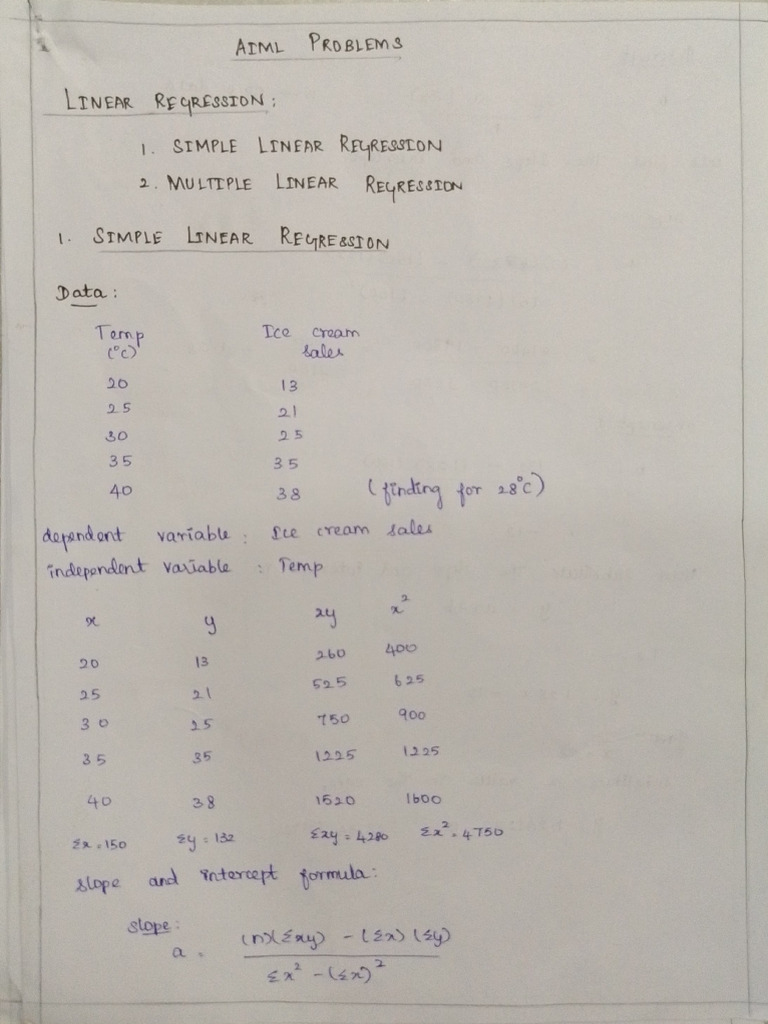 AIML PROBLEMS
LINEAR REGRESSION:
1. SIMPLE LINEAR REGRESSION
2. MULTIPLE LINEAR REGRESSION
1. SIMPLE LINEAR REGRESSION
Data:
Temp (°C) Ice cream sales
20 13
25 21
30 25
35 35
40 38 (finding for 28°C)
dependent variable : Ice cream sales
independent variable : Temp
x y xy x²
20 13 260 400
25 21 525 625
30 25 750 900
35 35 1225 1225
40 38 1520 1600
Σx = 150 Σy = 132 Σxy = 4280 Σx² = 4750
slope and intercept formula:
slope:
a = (n)(Σxy) - (Σx)(Σy) / Σx² - (Σx)²